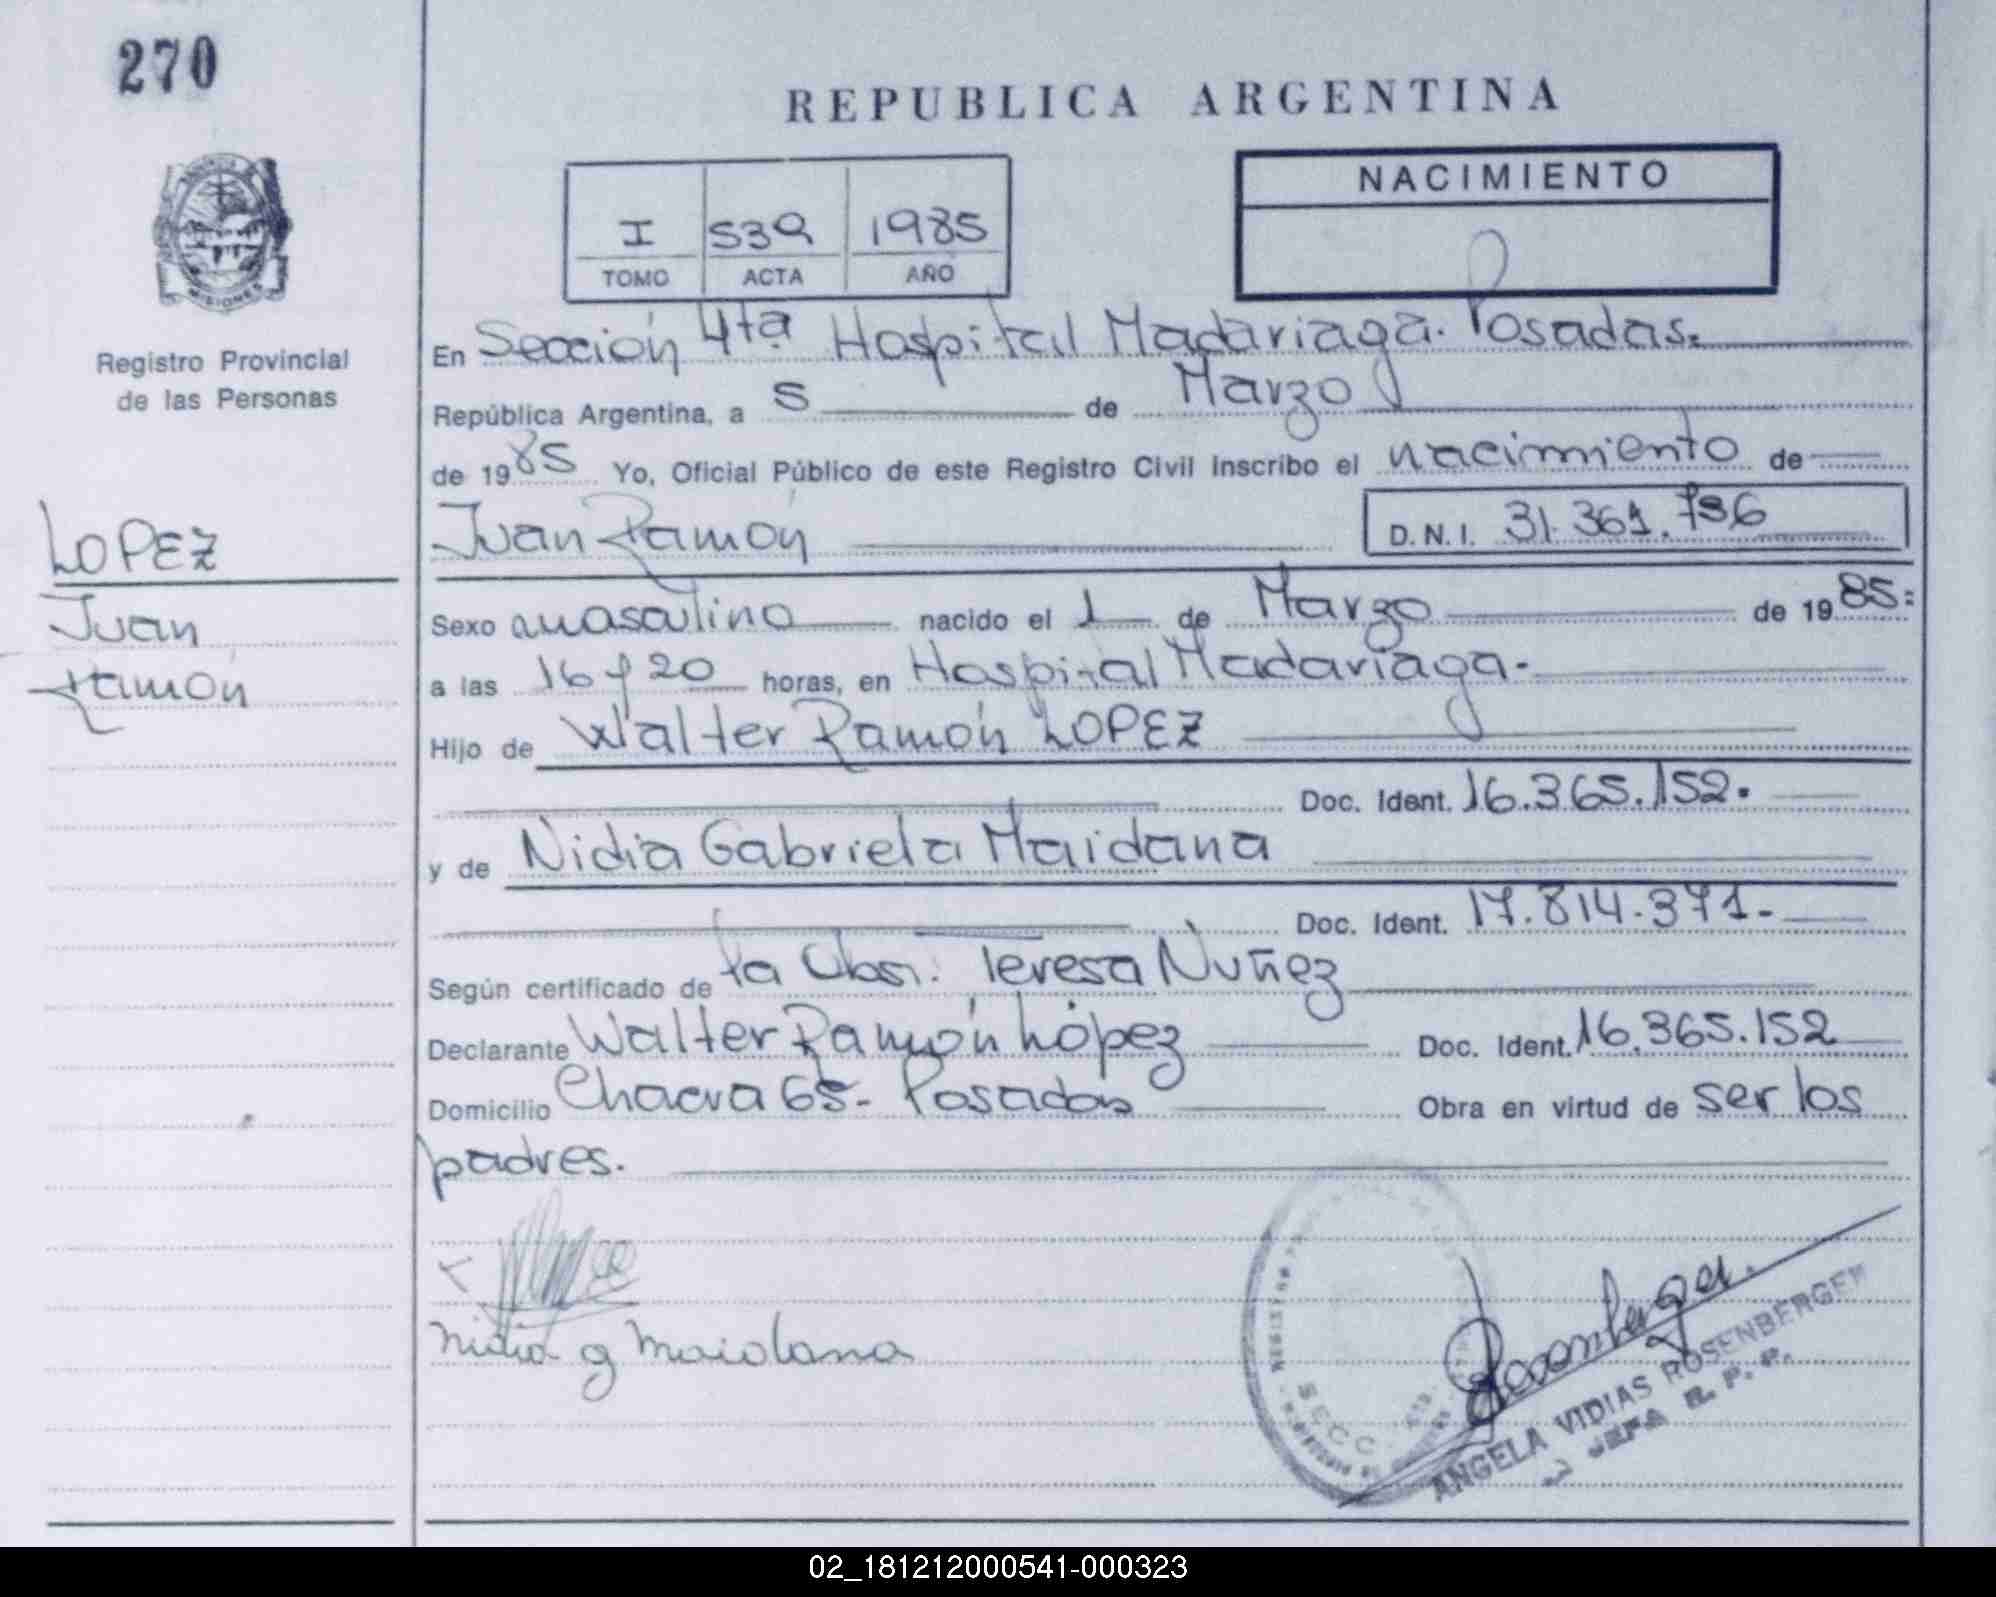 270
REPUBLICA ARGENTINA
I 539 1985
TOMO ACTA AÑO
NACIMIENTO
MISIONES
Registro Provincial
de las Personas
LOPEZ
Juan
Ramón
En Sección 4ta Hospital Madariaga. Posadas.
República Argentina, a 5 de Marzo
de 1985 Yo, Oficial Público de este Registro Civil inscribo el nacimiento de
Juan Ramón D.N.I. 31.361.736
Sexo masculino nacido el 1 de Marzo de 1985:
a las 16 y 20 horas, en Hospital Madariaga.
Hijo de Walter Ramón LOPEZ
Doc. Ident. 16.365.152.
y de Nidia Gabriela Maidana
Doc. Ident. 17.814.371.-
Según certificado de la Obst. Teresa Nuñez
Declarante Walter Ramón López Doc. Ident. 16.365.152
Domicilio Chacra 65- Posadas Obra en virtud de ser los
padres.
Nidia g Maidana
SECC.
Rosenberger
ANGELA VIDIAS ROSENBERGER
JEFA R. P. P.
02_181212000541-000323